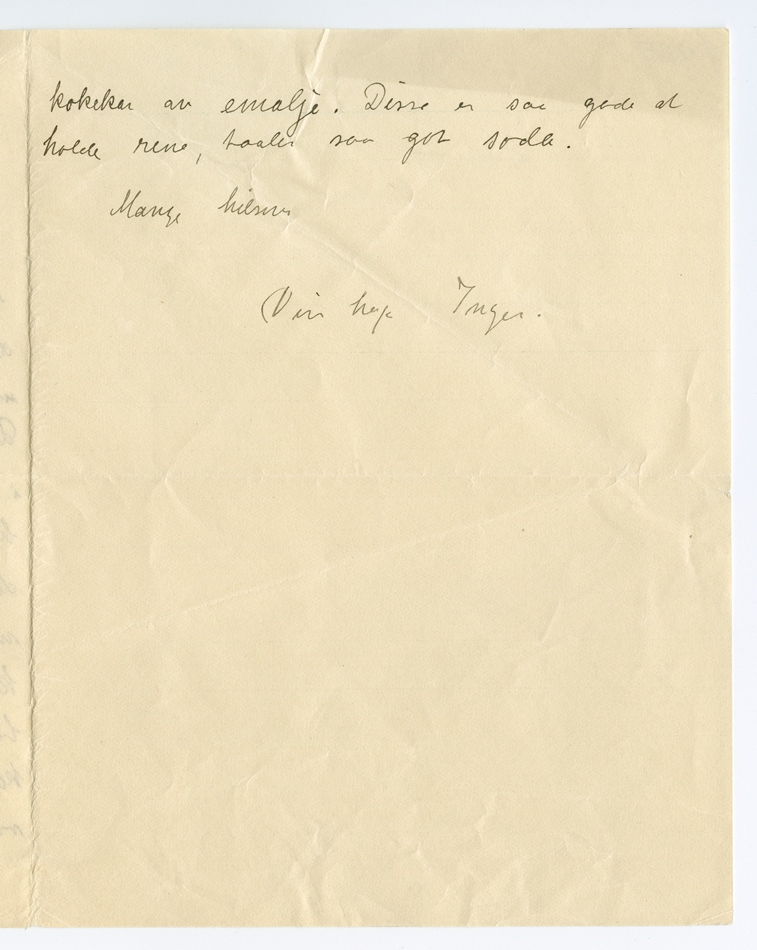 kokekar av emalje. Disse er saa gode at
holde rene, taaler saa got soda.
Mange hilsener
Din heng. Inger.